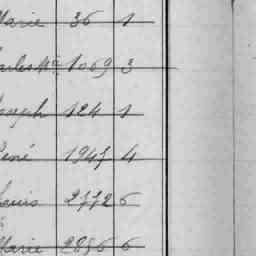 Marie 36 1
Charles Mie 1069 3
Joseph 124 1
René 1947 4
Louis 2772 6
Marie 2886 6